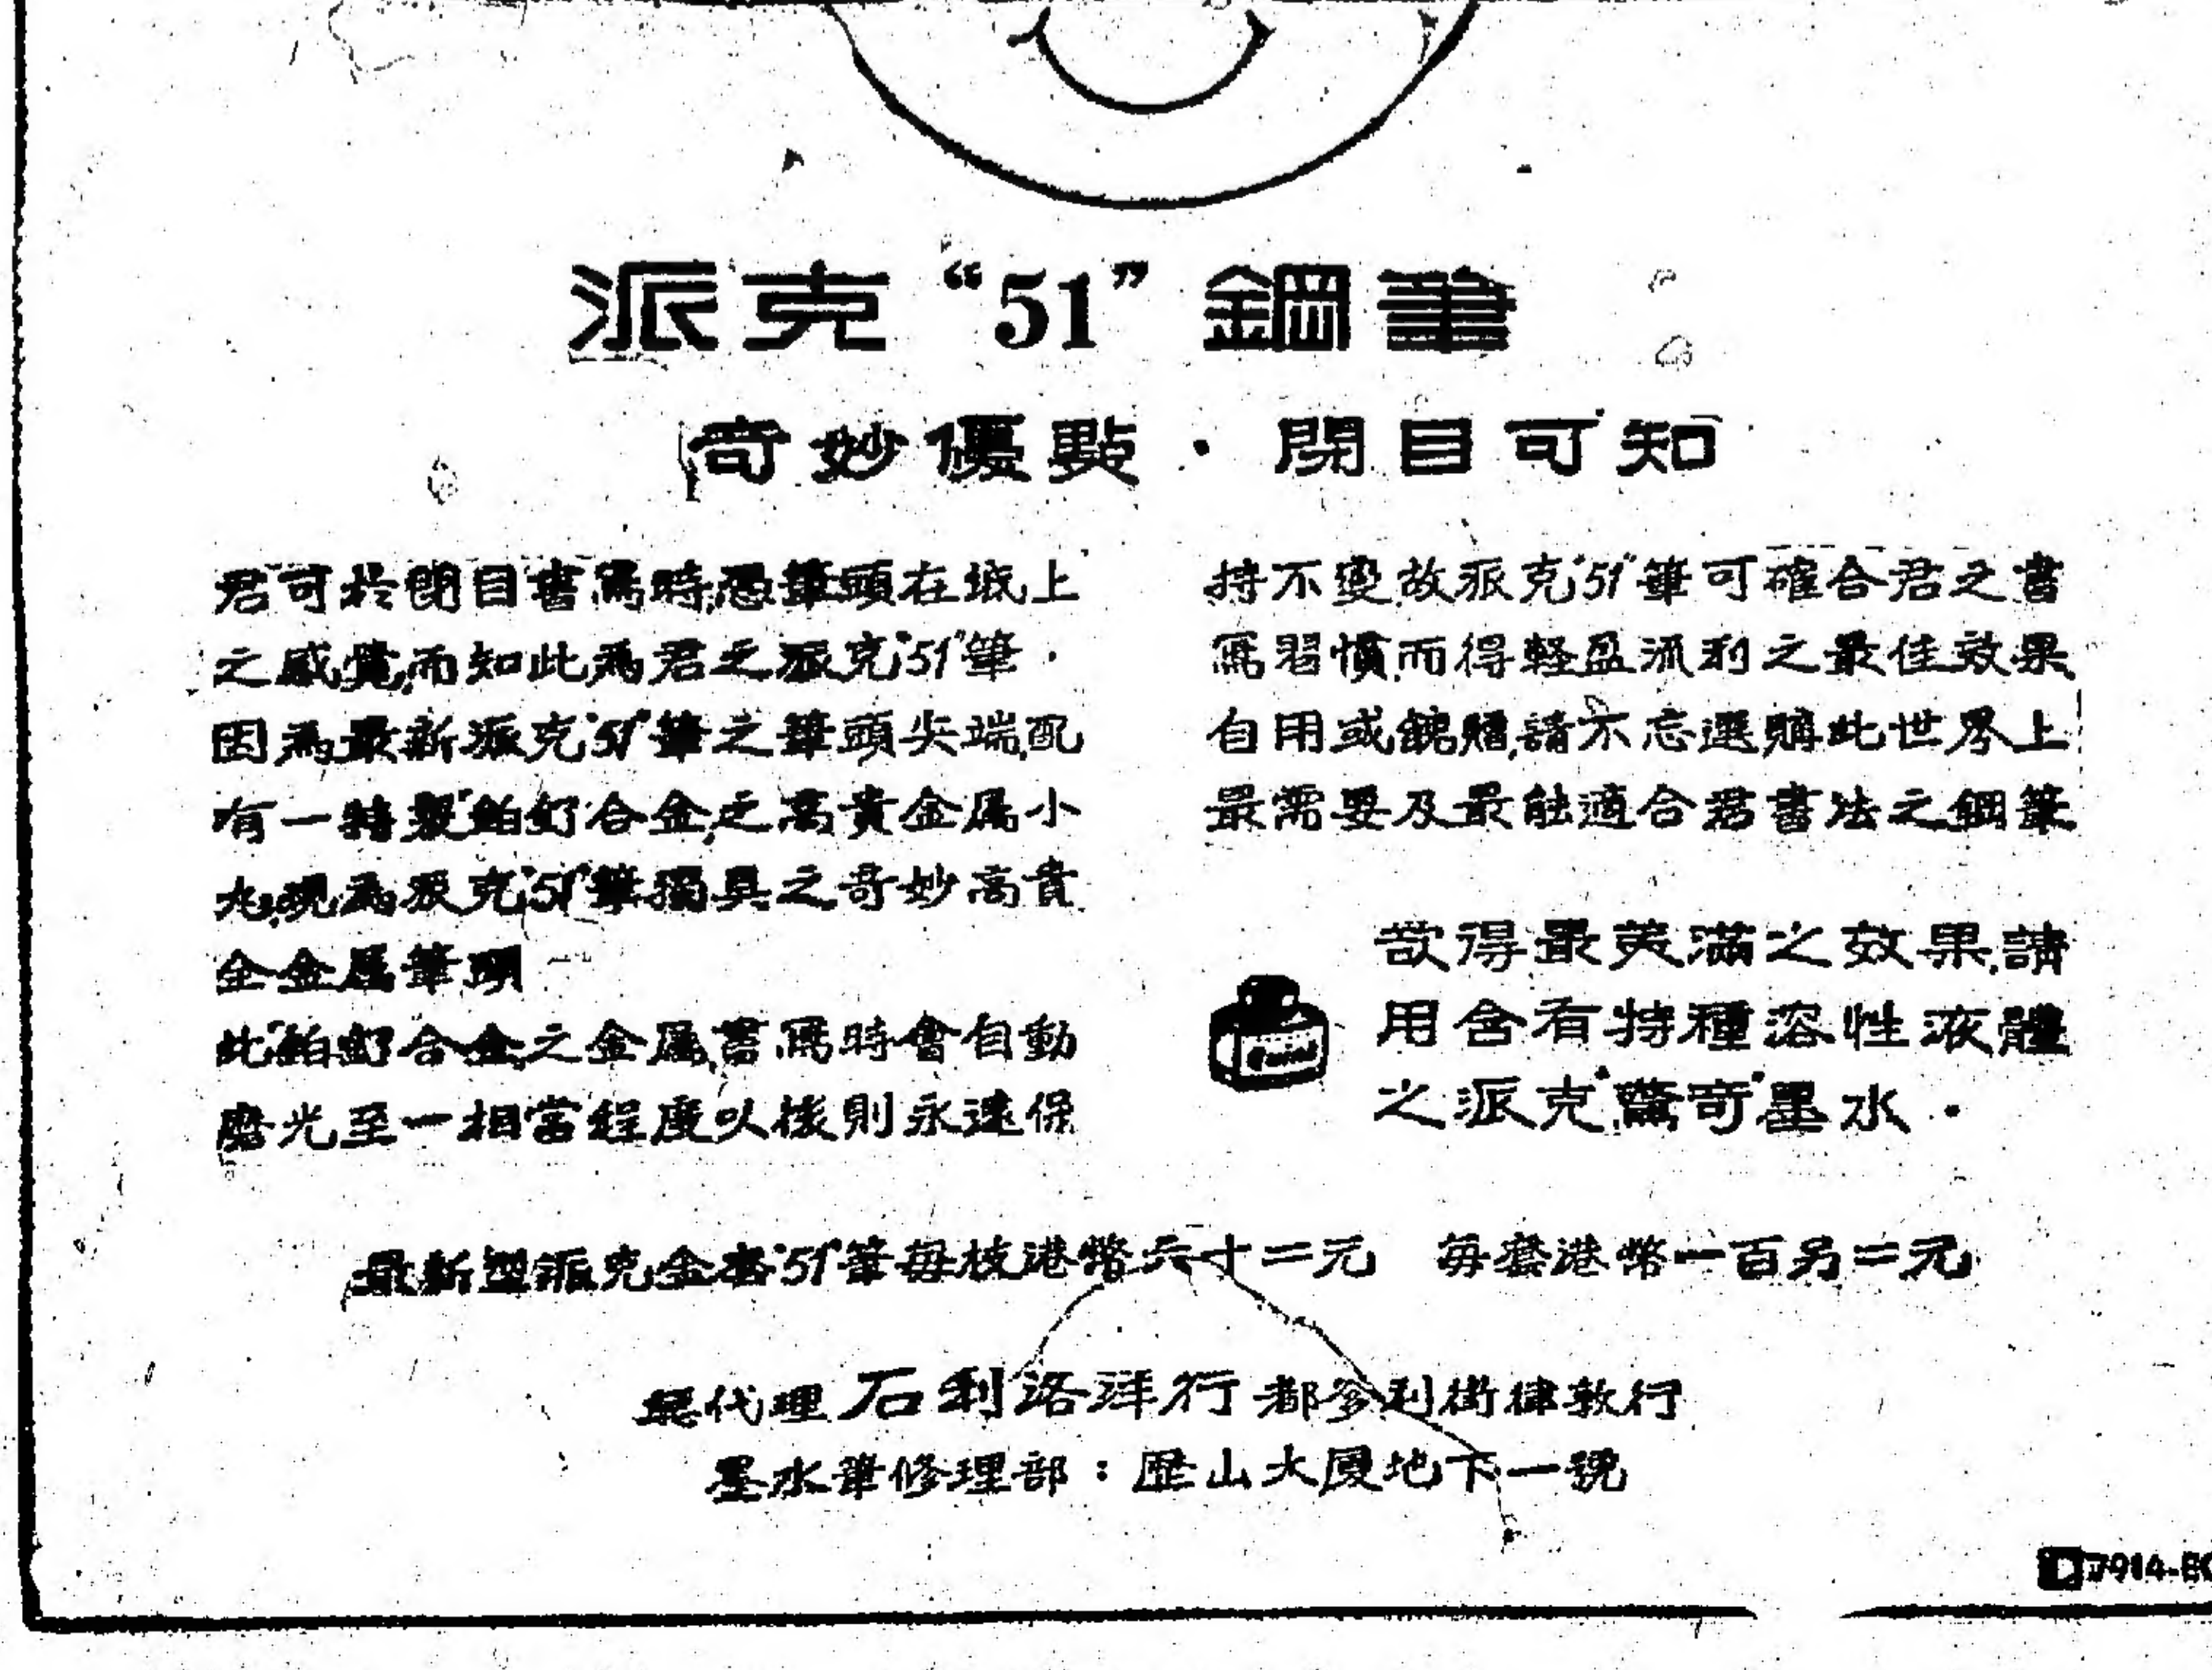 派克“51”鋼筆
奇妙優點·閉目可知
君可於閉目書寫時,憑筆頭在紙上
之感覺,而知此為君之派克“51”筆·
因為最新派克“51”筆之筆頭尖端,配
有一特製“鉑釕合金”之高貴金属小
丸,現為派克“51”筆獨具之奇妙高貴
全金属筆頭
此“鉑釕合金”之金属,書寫時會自動
磨光至一相當程度以後則永遠保
持不變,故派克“51”筆可確合君之書
寫習慣,而得輕盈流利之最佳效果
自用或餽贈,請不忘選購此世界上
最需要及最能適合君書法之鋼筆
欲得最美滿之效果,請
用含有特種溶性液體
之派克“驚奇”墨水·
Quink
最新型派克金套“51”筆每枝港幣六十二元 每套港幣一百另二元
總代理 石利洛洋行 都爹利街律敦行
墨水筆修理部:歷山大廈地下一號
7914-